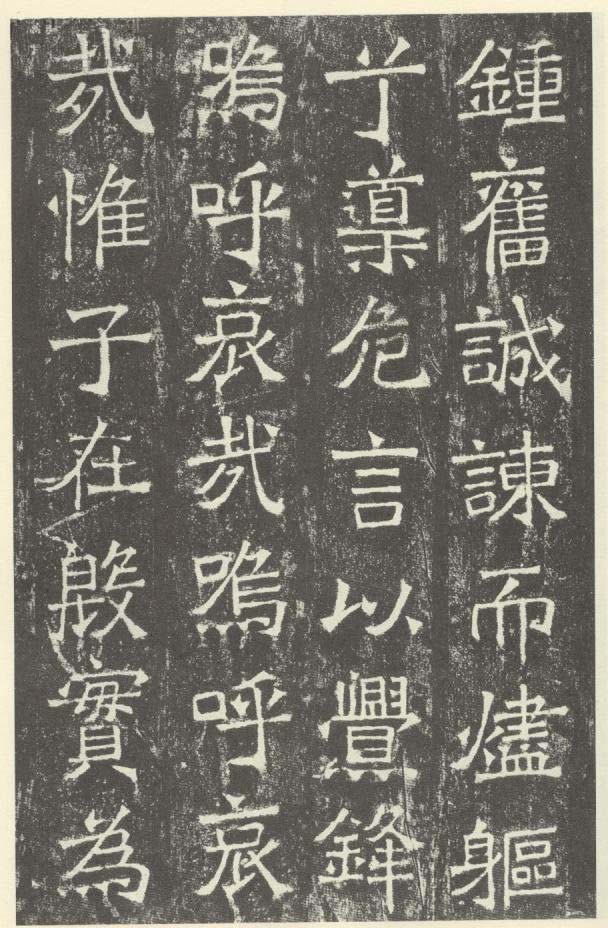 鍾奮誠諫而燼軀
兮導危言以舋鋒
嗚呼哀哉嗚呼哀
哉惟子在殷實為